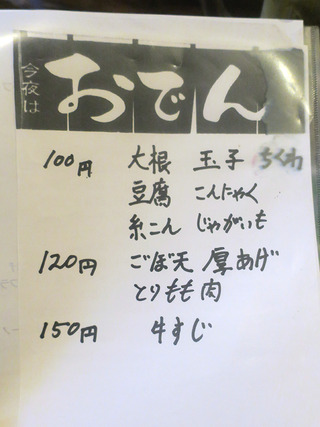 今夜は
おでん
100円 大根 玉子 ちくわ
豆腐 こんにゃく
糸こん じゃがいも
120円 ごぼ天 厚あげ
とりもも肉
150円 牛すじ